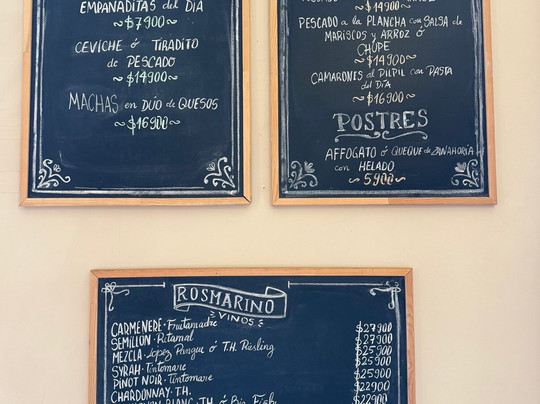 EMPANADITAS del DIA
~$7900~
CEVICHE ó TIRADITO
de PESCADO
~$14900~
MACHAS en DÚO de QUESOS
~$16900~
~$14900~
PESCADO a la PLANCHA con SALSA de
MARISCOS y ARROZ ó
CHUPE
~$14900~
CAMARONES al DILPIL con PASTA
del DIA
~$16900~
POSTRES
AFFOGATO ó QUEQUE de ZANAHORIA
con HELADO
~5900~
ROSMARINO
VINOS
CARMENERE · Frutamadre $27900
SEMILLON · Ritamal $27900
MEZCLA · Lopez Pangue ó T.H. Riesling $25900
SYRAH · Tintomare $25900
PINOT NOIR · Tintomare $25900
CHARDONNAY · T.H. $22900
BLANC · T.H. ó Big Fish $22900